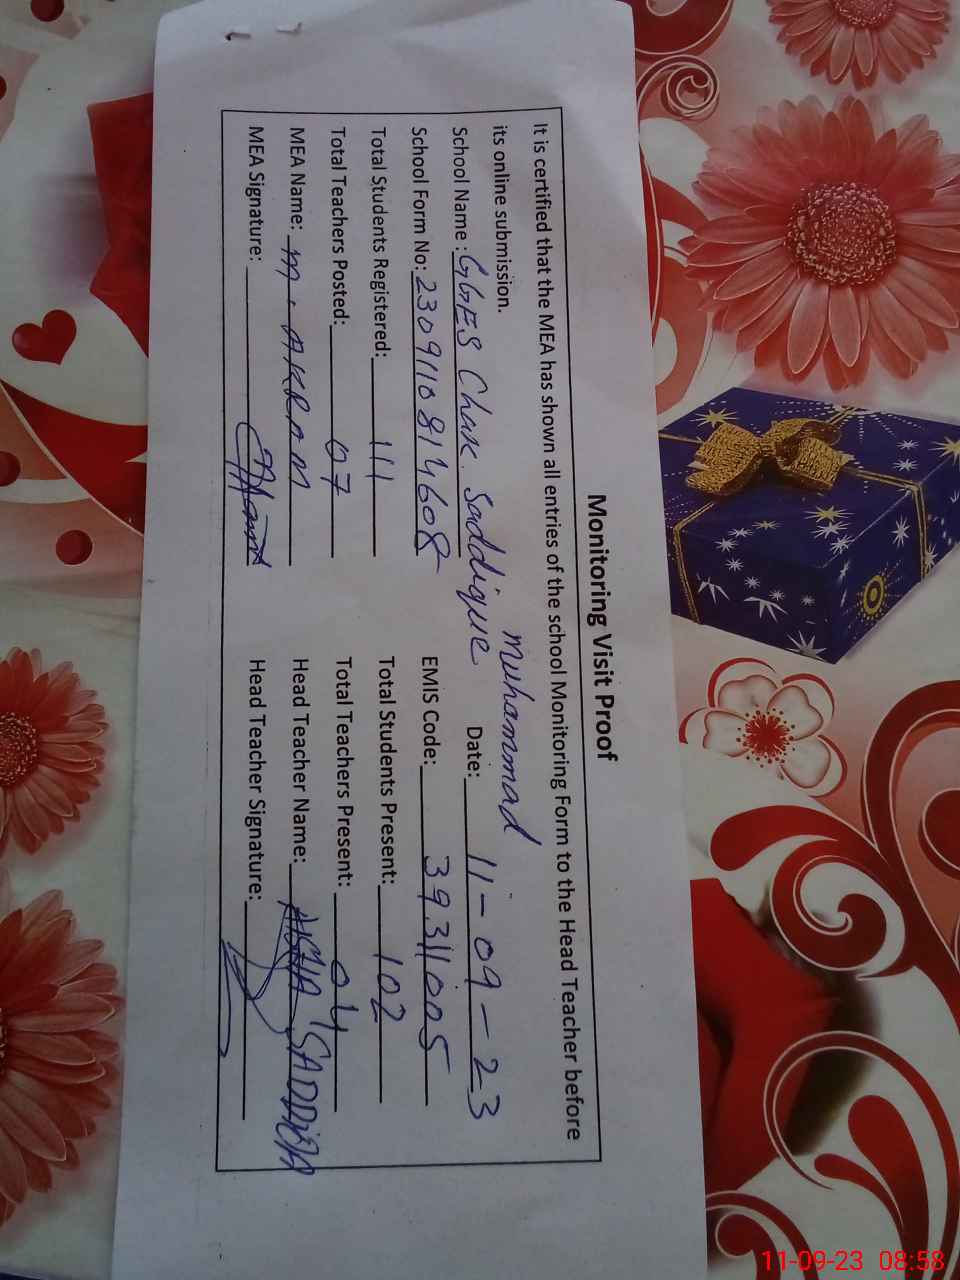 Monitoring Visit Proof
It is certified that the MEA has shown all entries of the school Monitoring Form to the Head Teacher before
its online submission.
Muhammad
School Name : GGES Chak. Saddique Date: 11-09-23
School Form No: 23091108114608 EMIS Code: 39311005
Total Students Registered: 111 Total Students Present: 102
Total Teachers Posted: 07 Total Teachers Present: 04
MEA Name: M. AKRAM Head Teacher Name: SADDIQA
MEA Signature: Head Teacher Signature:
11-09-23 08:58